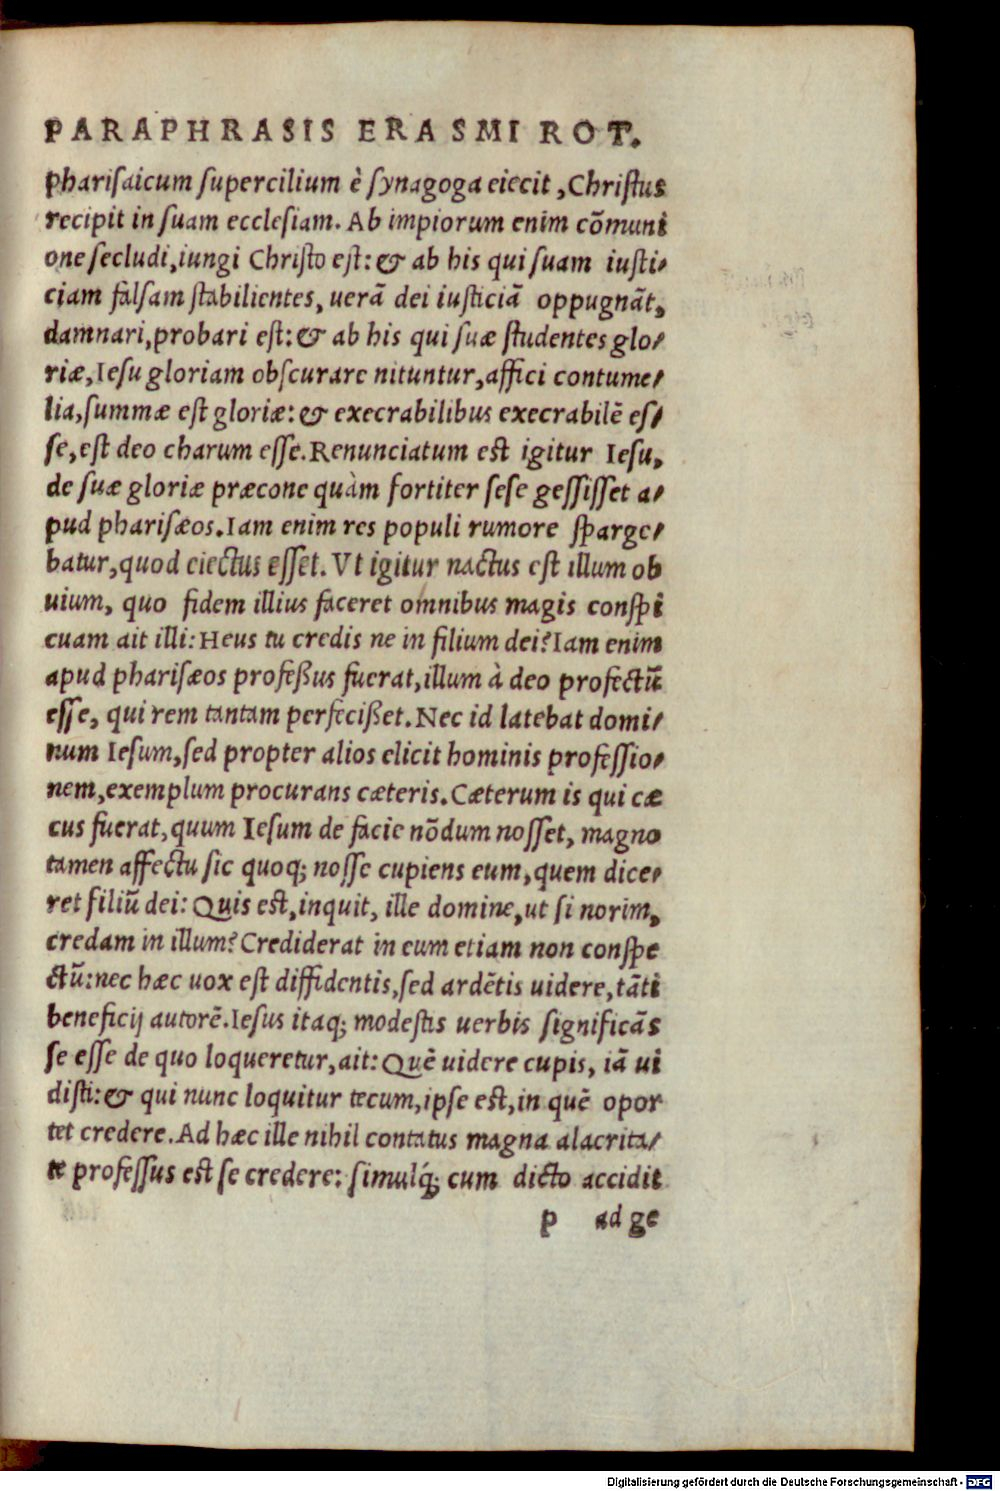 PARAPHRASIS ERASMI ROT.
pharisaicum supercilium è synagoga eiecit, Christus
recipit in suam ecclesiam. Ab impiorum enim cõmuni
one secludi, iungi Christo est: & ab his qui suam iusti-
ciam falsam stabilientes, uerã dei iusticiã oppugnãt,
damnari, probari est: & ab his qui suæ studentes glo-
riæ, Iesu gloriam obscurare nituntur, affici contume-
lia, summæ est gloriæ: & execrabilibus execrabilẽ es-
se, est deo charum esse. Renunciatum est igitur Iesu,
de suæ gloriæ præcone quàm fortiter sese gessisset a-
pud pharisæos. Iam enim res populi rumore sparge-
batur, quod eiectus esset. Vt igitur nactus est illum ob
uium, quo fidem illius faceret omnibus magis conspi
cuam ait illi: Heus tu credis ne in filium dei? Iam enim
apud pharisæos profeßus fuerat, illum à deo profectũ
esse, qui rem tantam perfecißet. Nec id latebat domi-
num Iesum, sed propter alios elicit hominis professio-
nem, exemplum procurans cæteris. Cæterum is qui cæ
cus fuerat, quum Iesum de facie nõdum nosset, magno
tamen affectu sic quoq; nosse cupiens eum, quem dice-
ret filiũ dei: Quis est, inquit, ille domine, ut si norim,
credam in illum? Crediderat in eum etiam non conspe
ctũ: nec hæc uox est diffidentis, sed ardẽtis uidere, tãti
beneficij autorẽ. Iesus itaq; modestis uerbis significãs
se esse de quo loqueretur, ait: Quẽ uidere cupis, iã ui
disti: & qui nunc loquitur tecum, ipse est, in quẽ opor
tet credere. Ad hæc ille nihil contatus magna alacrita-
te professus est se credere: simulq́; cum dicto accidit
p ad ge
Digitalisierung gefördert durch die Deutsche Forschungsgemeinschaft - DFG